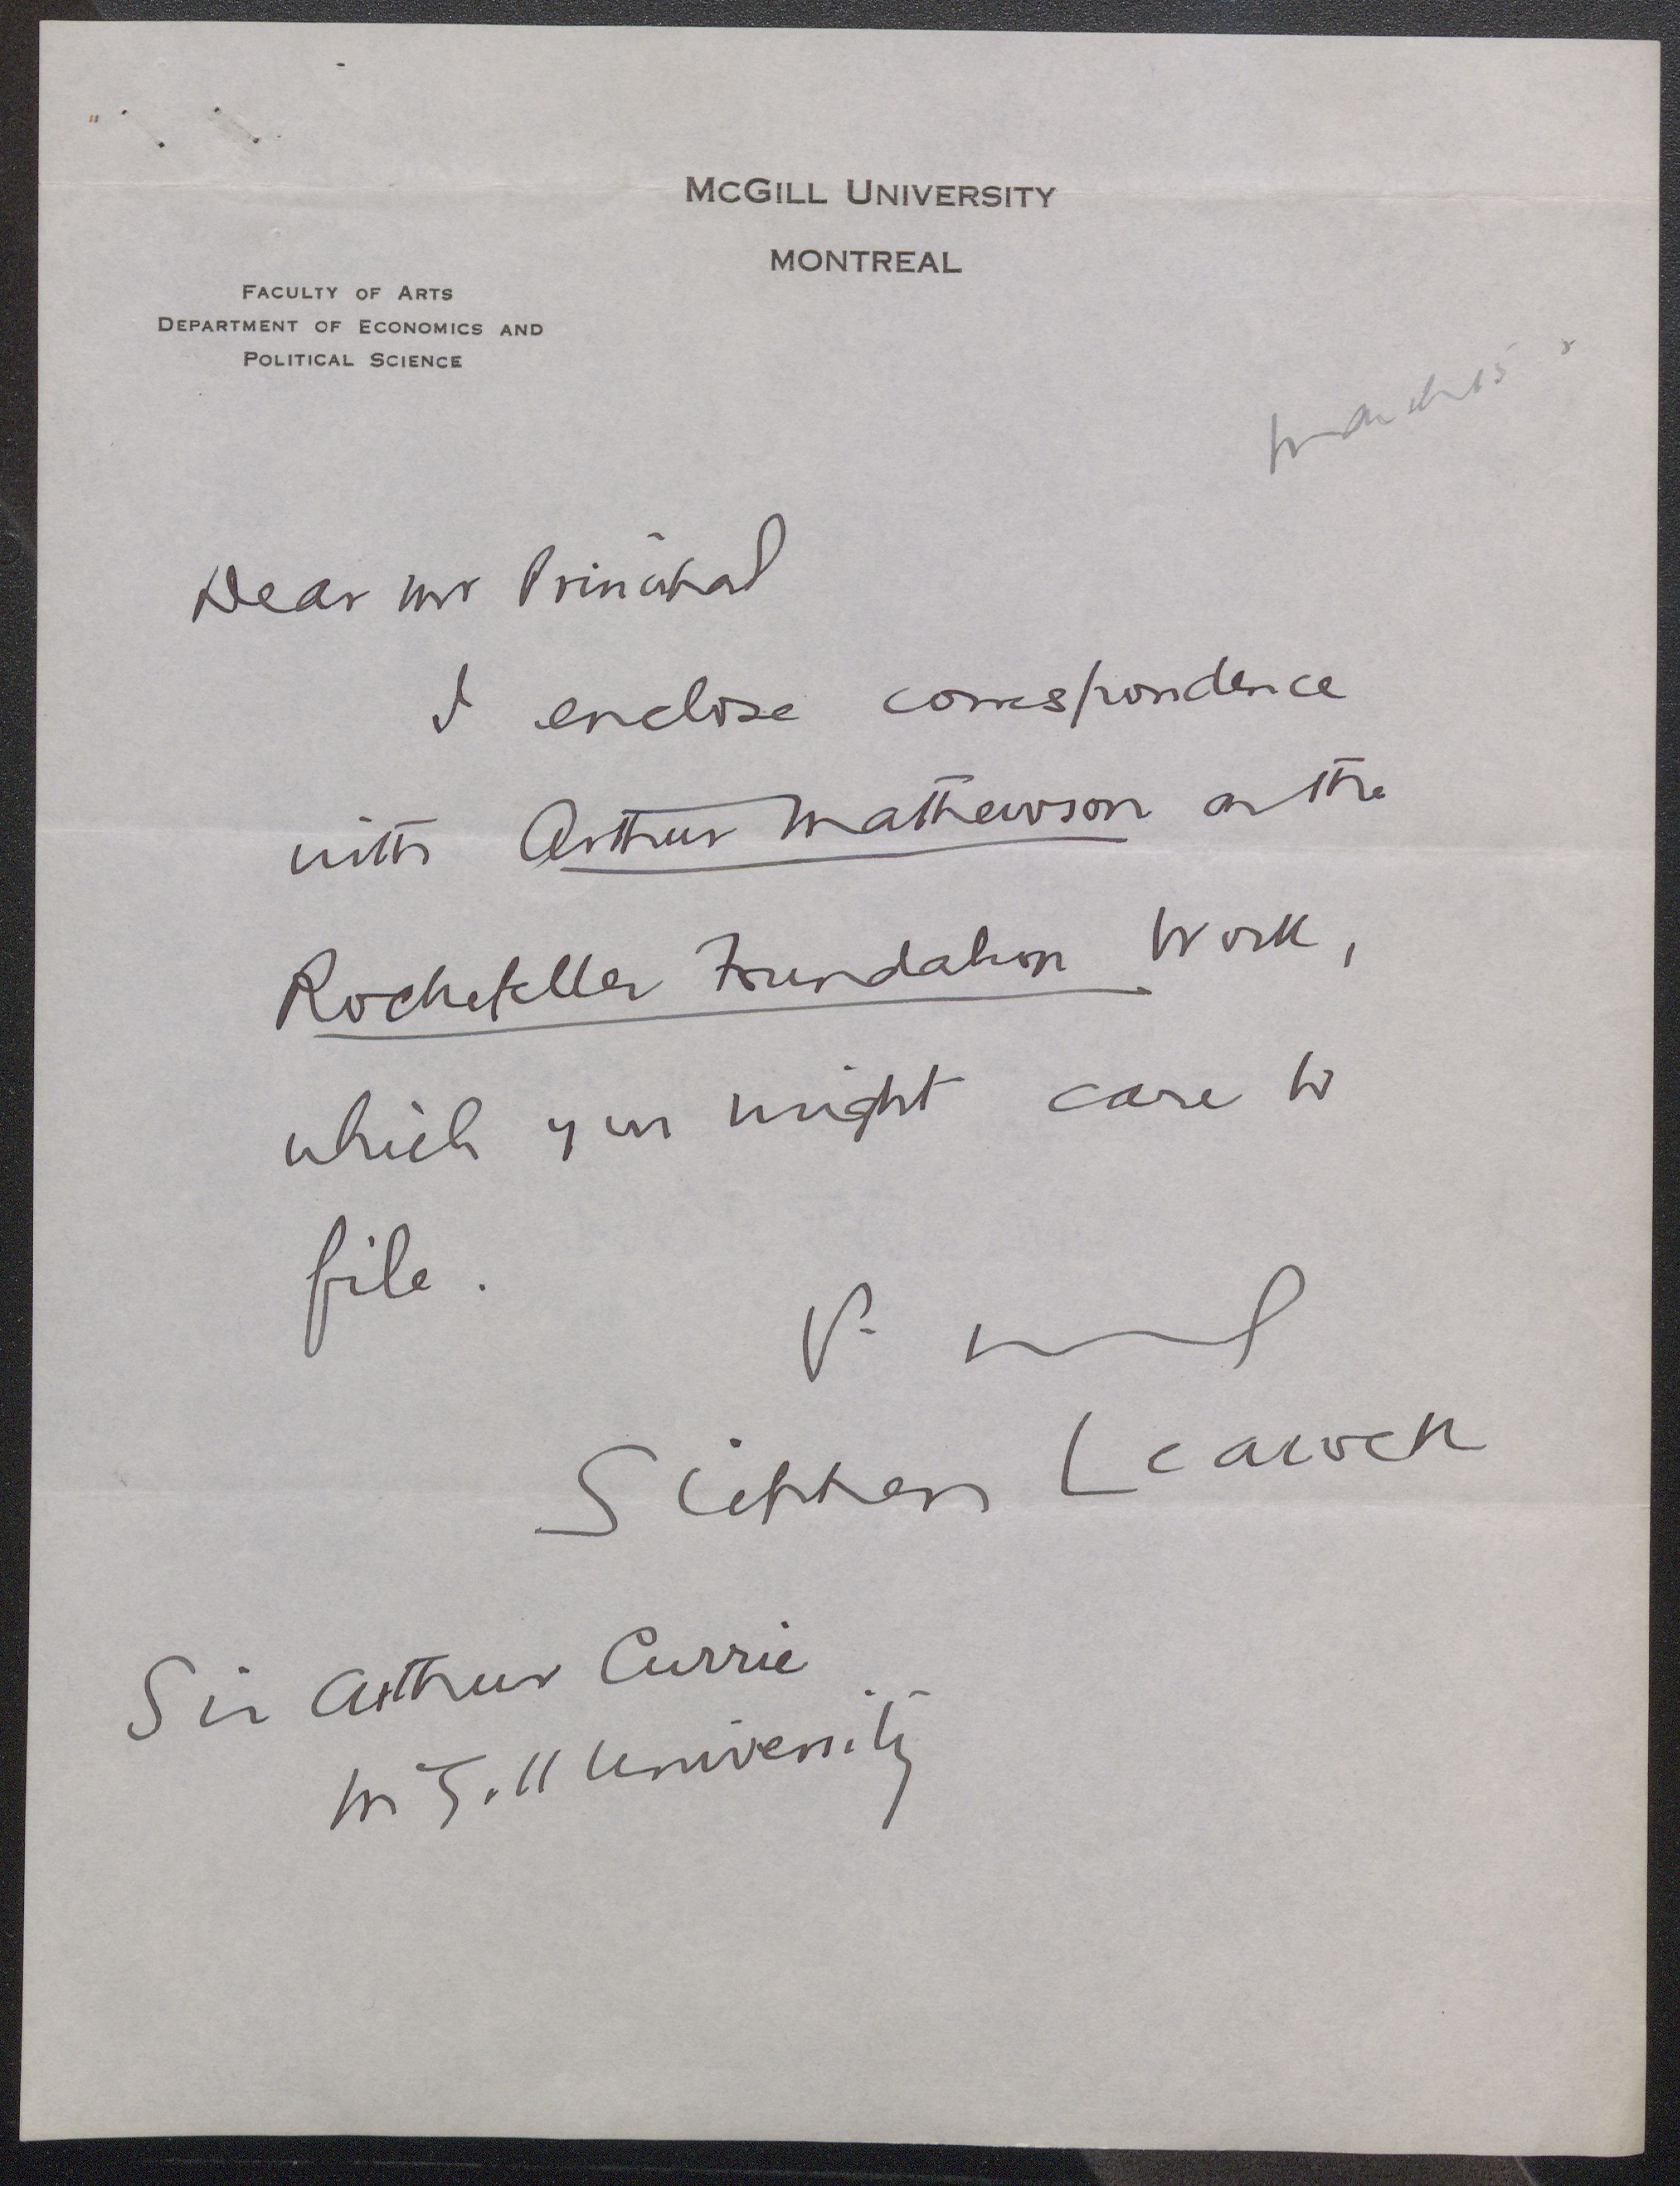 McGill University
MONTREAL
Faculty of Arts
Department of Economics and
Political Science
March 15
Dear Mr Principal
I enclose correspondence
with Arthur Mathewson on the
Rockefeller Foundation Work,
which you might care to
file.
Stephen Leacock
Sir Arthur Currie
McGill University